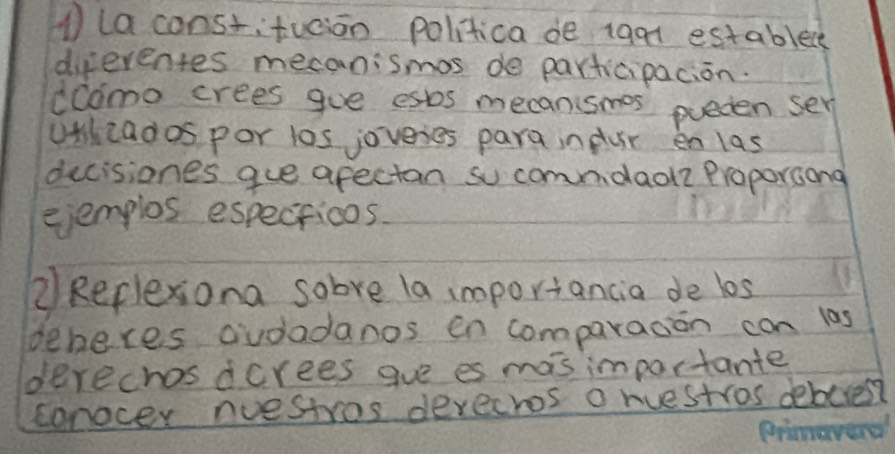 1) la constitución política de 1991 establece
diferentes mecanismos de participación.
¿cómo crees que estos mecanismos pueden ser
utilizados por los jovenes para influir en las
decisiones que afectan su comunidad? Proporciona
ejemplos especificos.
2) Reflexiona sobre la importancia de los
deberes ciudadanos en comparación con las
derechos ¿crees que es más importante
conocer nuestros derechos o nuestros deberes?
Primavera